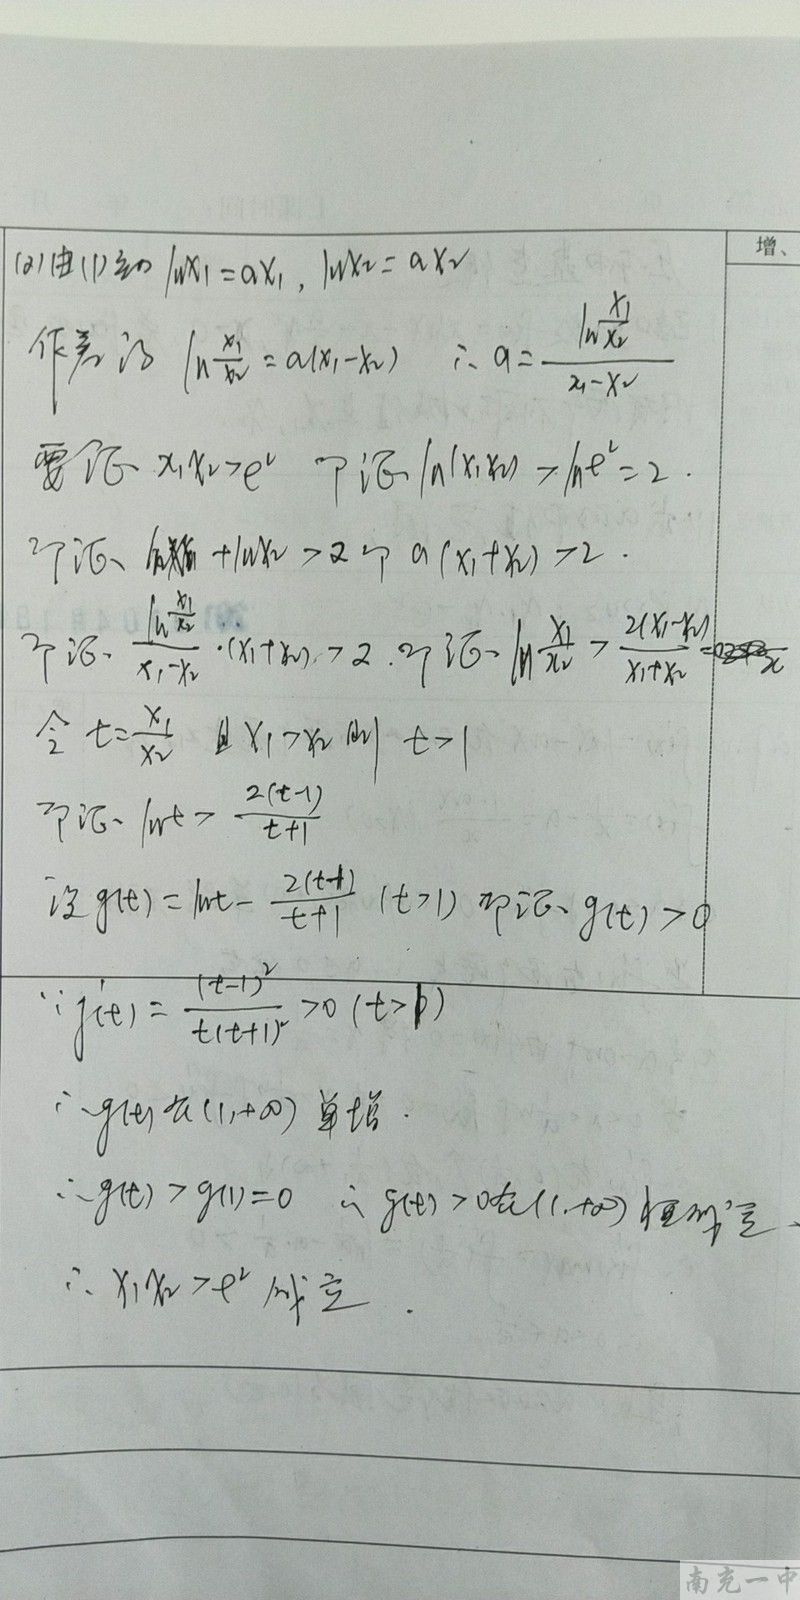 增、
(2)由(1)知 lnx₁=ax₁, lnx₂=ax₂
作差得 ln x₁/x₂ = a(x₁-x₂) ∴ a= ln x₁/x₂ / x₁-x₂
要证 x₁x₂>e² 即证 ln(x₁x₂) > lne²=2.
即证 +lnx₂ >2 即 a(x₁+x₂) >2.
即证 ln x₁/x₂ / x₁-x₂ ·(x₁+x₂) >2. 即证 ln x₁/x₂ > 2(x₁-x₂) / x₁+x₂
令 t= x₁/x₂ 且 x₁>x₂ 则 t>1
即证 lnt> 2(t-1) / t+1
设 g(t)=lnt- 2(t-1) / t+1 (t>1) 即证 g(t)>0
∵ g'(t)= (t-1)² / t(t+1)² >0 (t>1)
∴ g(t)在(1,+∞) 单增.
∴ g(t)>g(1)=0 ∴ g(t)>0在(1,+∞) 恒成立.
∴ x₁x₂>e² 成立.
南充一中